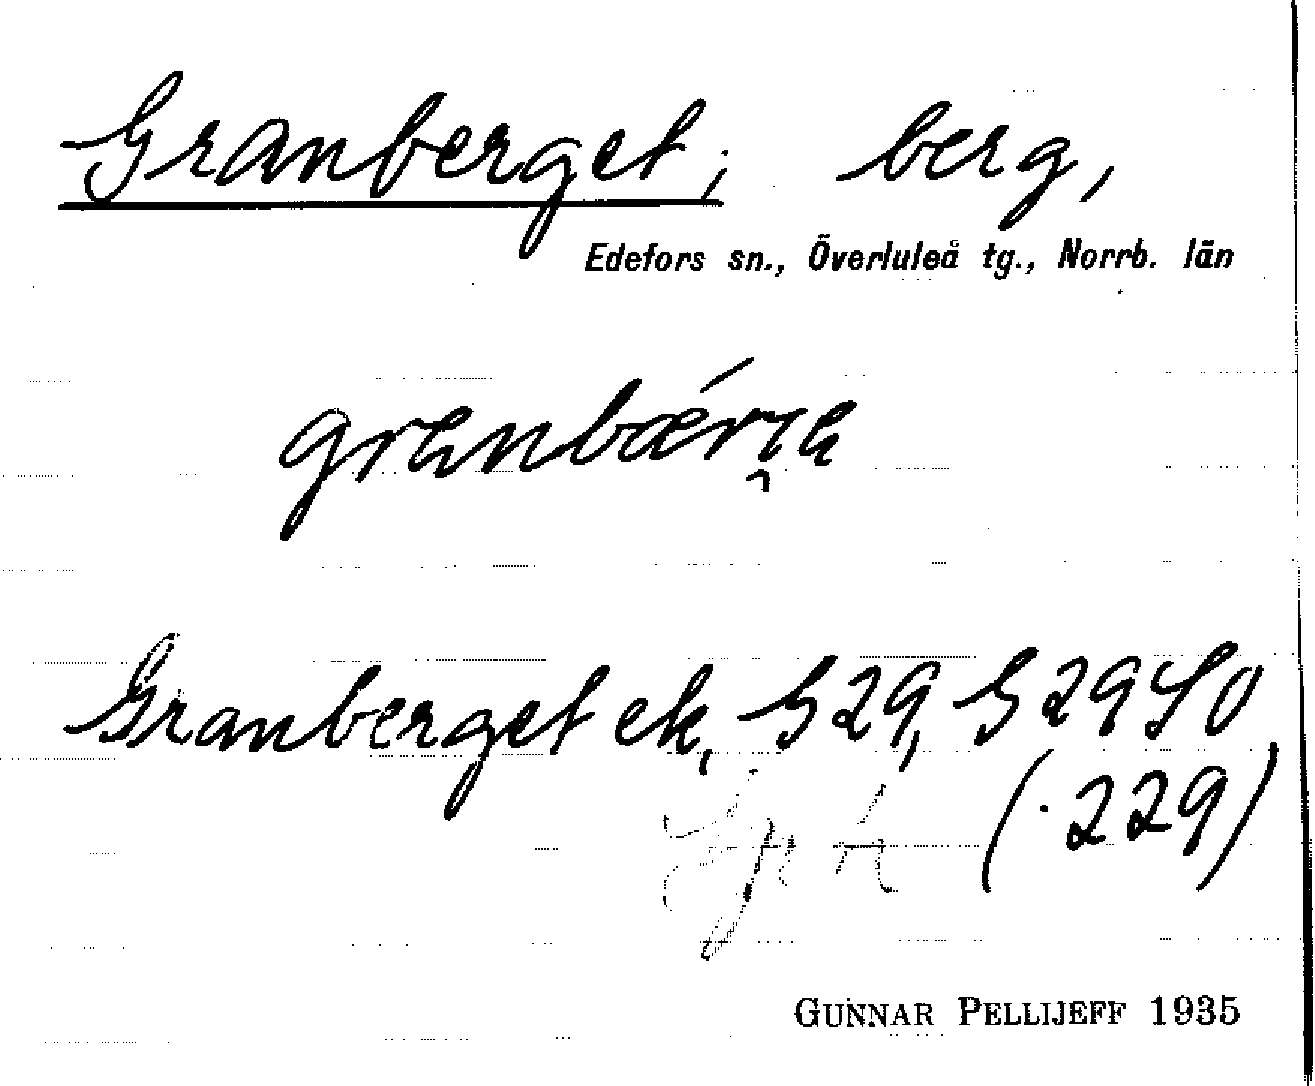 Granberget, berg,
Edefors sn., Överluleå tg., Norrb. län
Granberget ek, S 29, S 29 SO
(229)
GUNNAR PELLIJEFF 1935